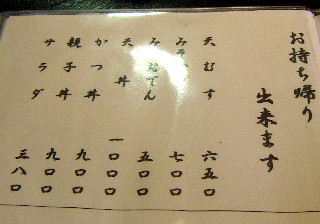 お持ち帰り
出来ます
天むす 六五〇
み 七〇〇
み でん 五〇〇
天丼 一〇〇〇
かつ丼 九〇〇
親子丼 九〇〇
サラダ 三八〇